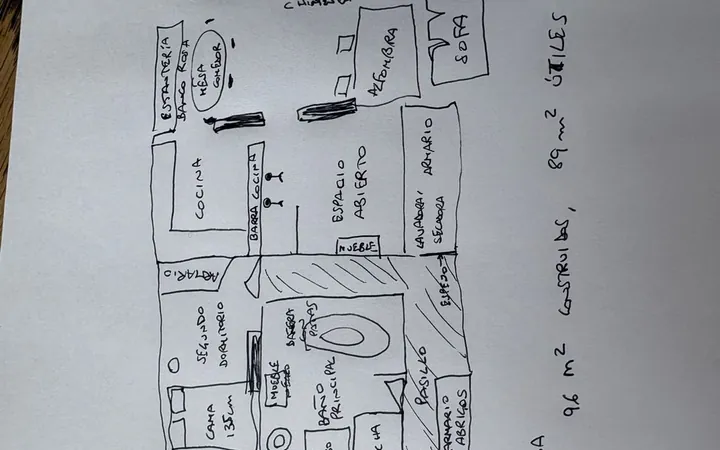 ESTANTERÍA
BANCO ROPA
MESA
COMEDOR
ALFOMBRA
SOFA
COCINA
BARRA COCINA
ESPACIO
ABIERTO
LAVADORA/
SECADORA
ARMARIO
MUEBLE
ARMARIO
ESPEJO
SEGUNDO
DORMITORIO
BAÑERA
CON
PATAS
MUEBLE
BAÑO
PRINCIPAL
PASILLO
CAMA
135cm
ARMARIO
ABRIGOS
96 m² CONSTRUIDOS, 89 m² ÚTILES